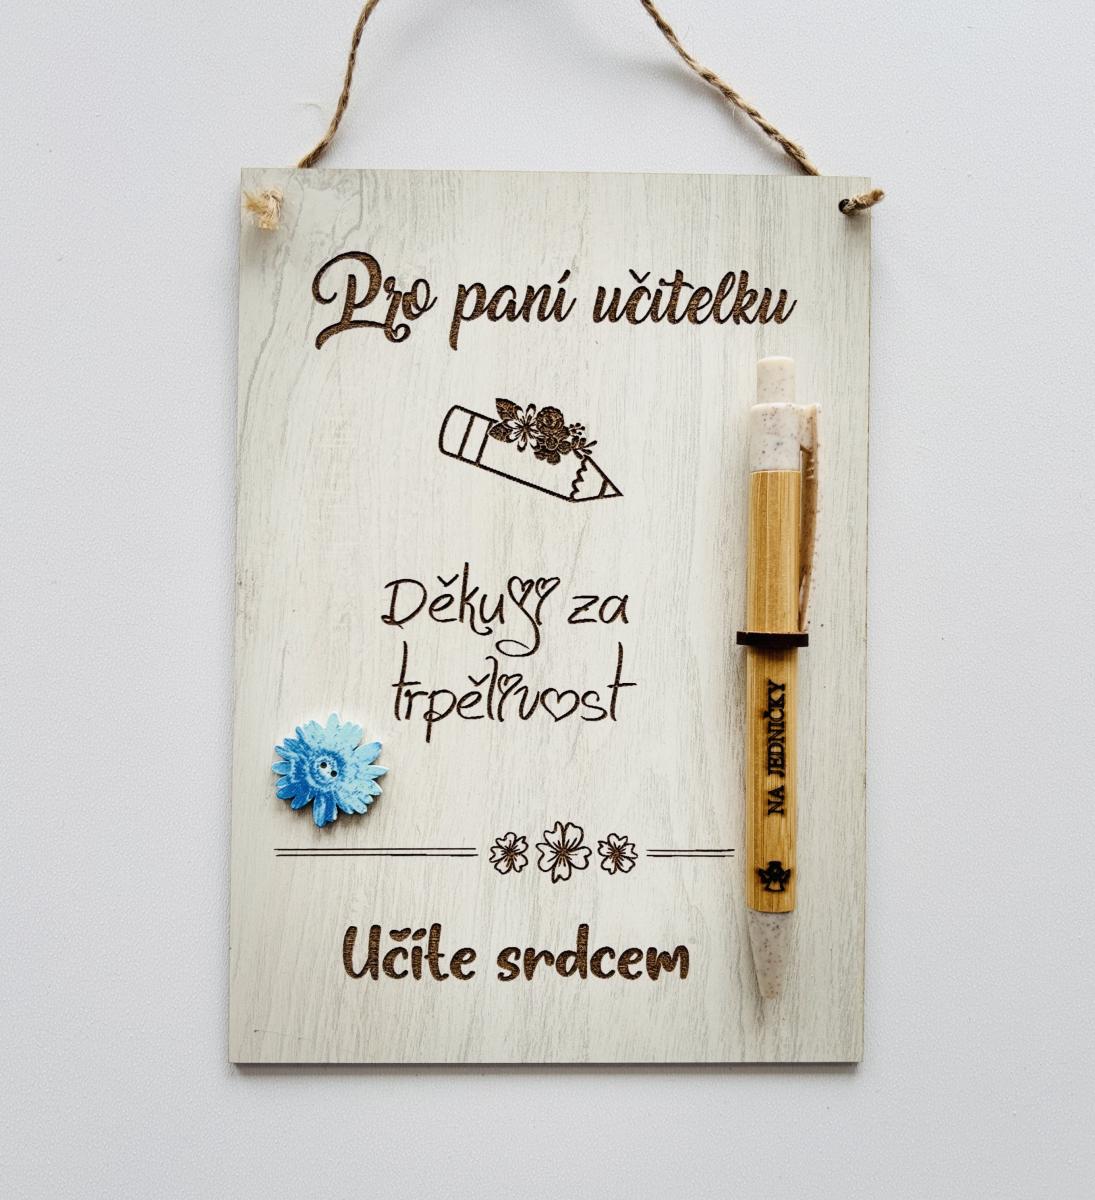 Pro paní učitelku
Děkuji za
trpělivost
NA JEDNIČKY
Učíte srdcem